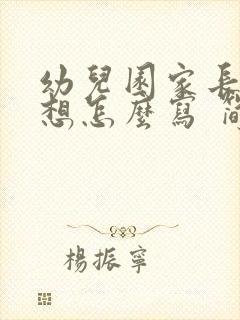 幼兒園家長
想怎麼寫
楊振寧